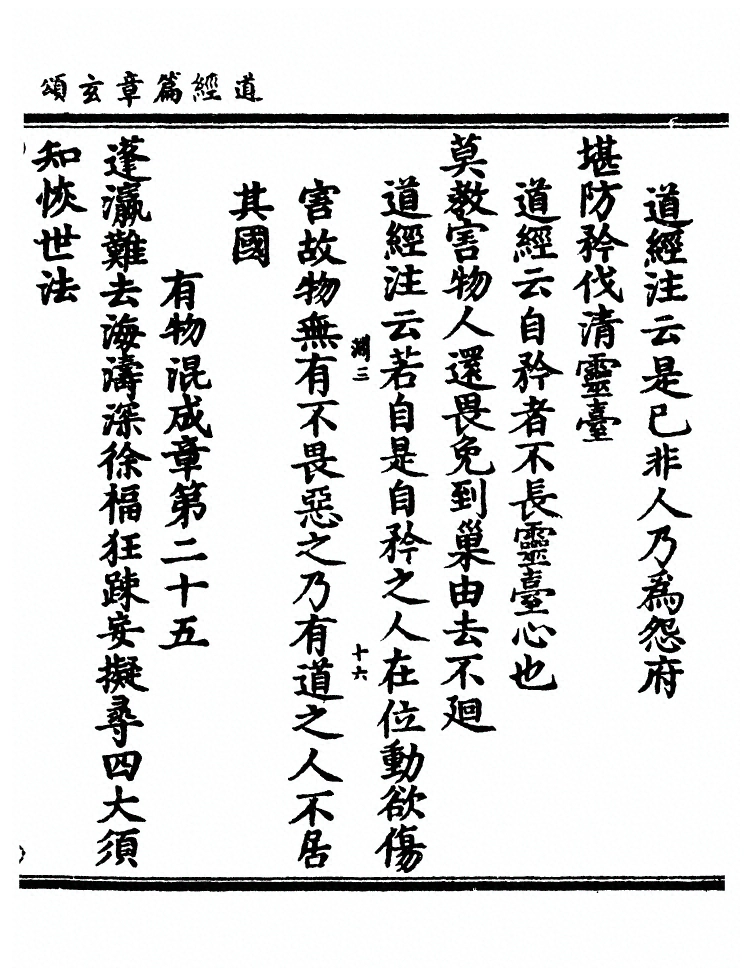 道經篇章玄頌
道經注云是已非人乃為怨府
堪防矜伐清靈臺
道經云自矜者不長靈臺心也
莫教害物人還畏免到巢由去不迴
道經注云若自是自矜之人在位動欲傷
淵三
十六
害故物無有不畏惡之乃有道之人不居
其國
有物混成章第二十五
蓬瀛難去海濤深徐福狂踈妄擬尋四大須
知恢世法